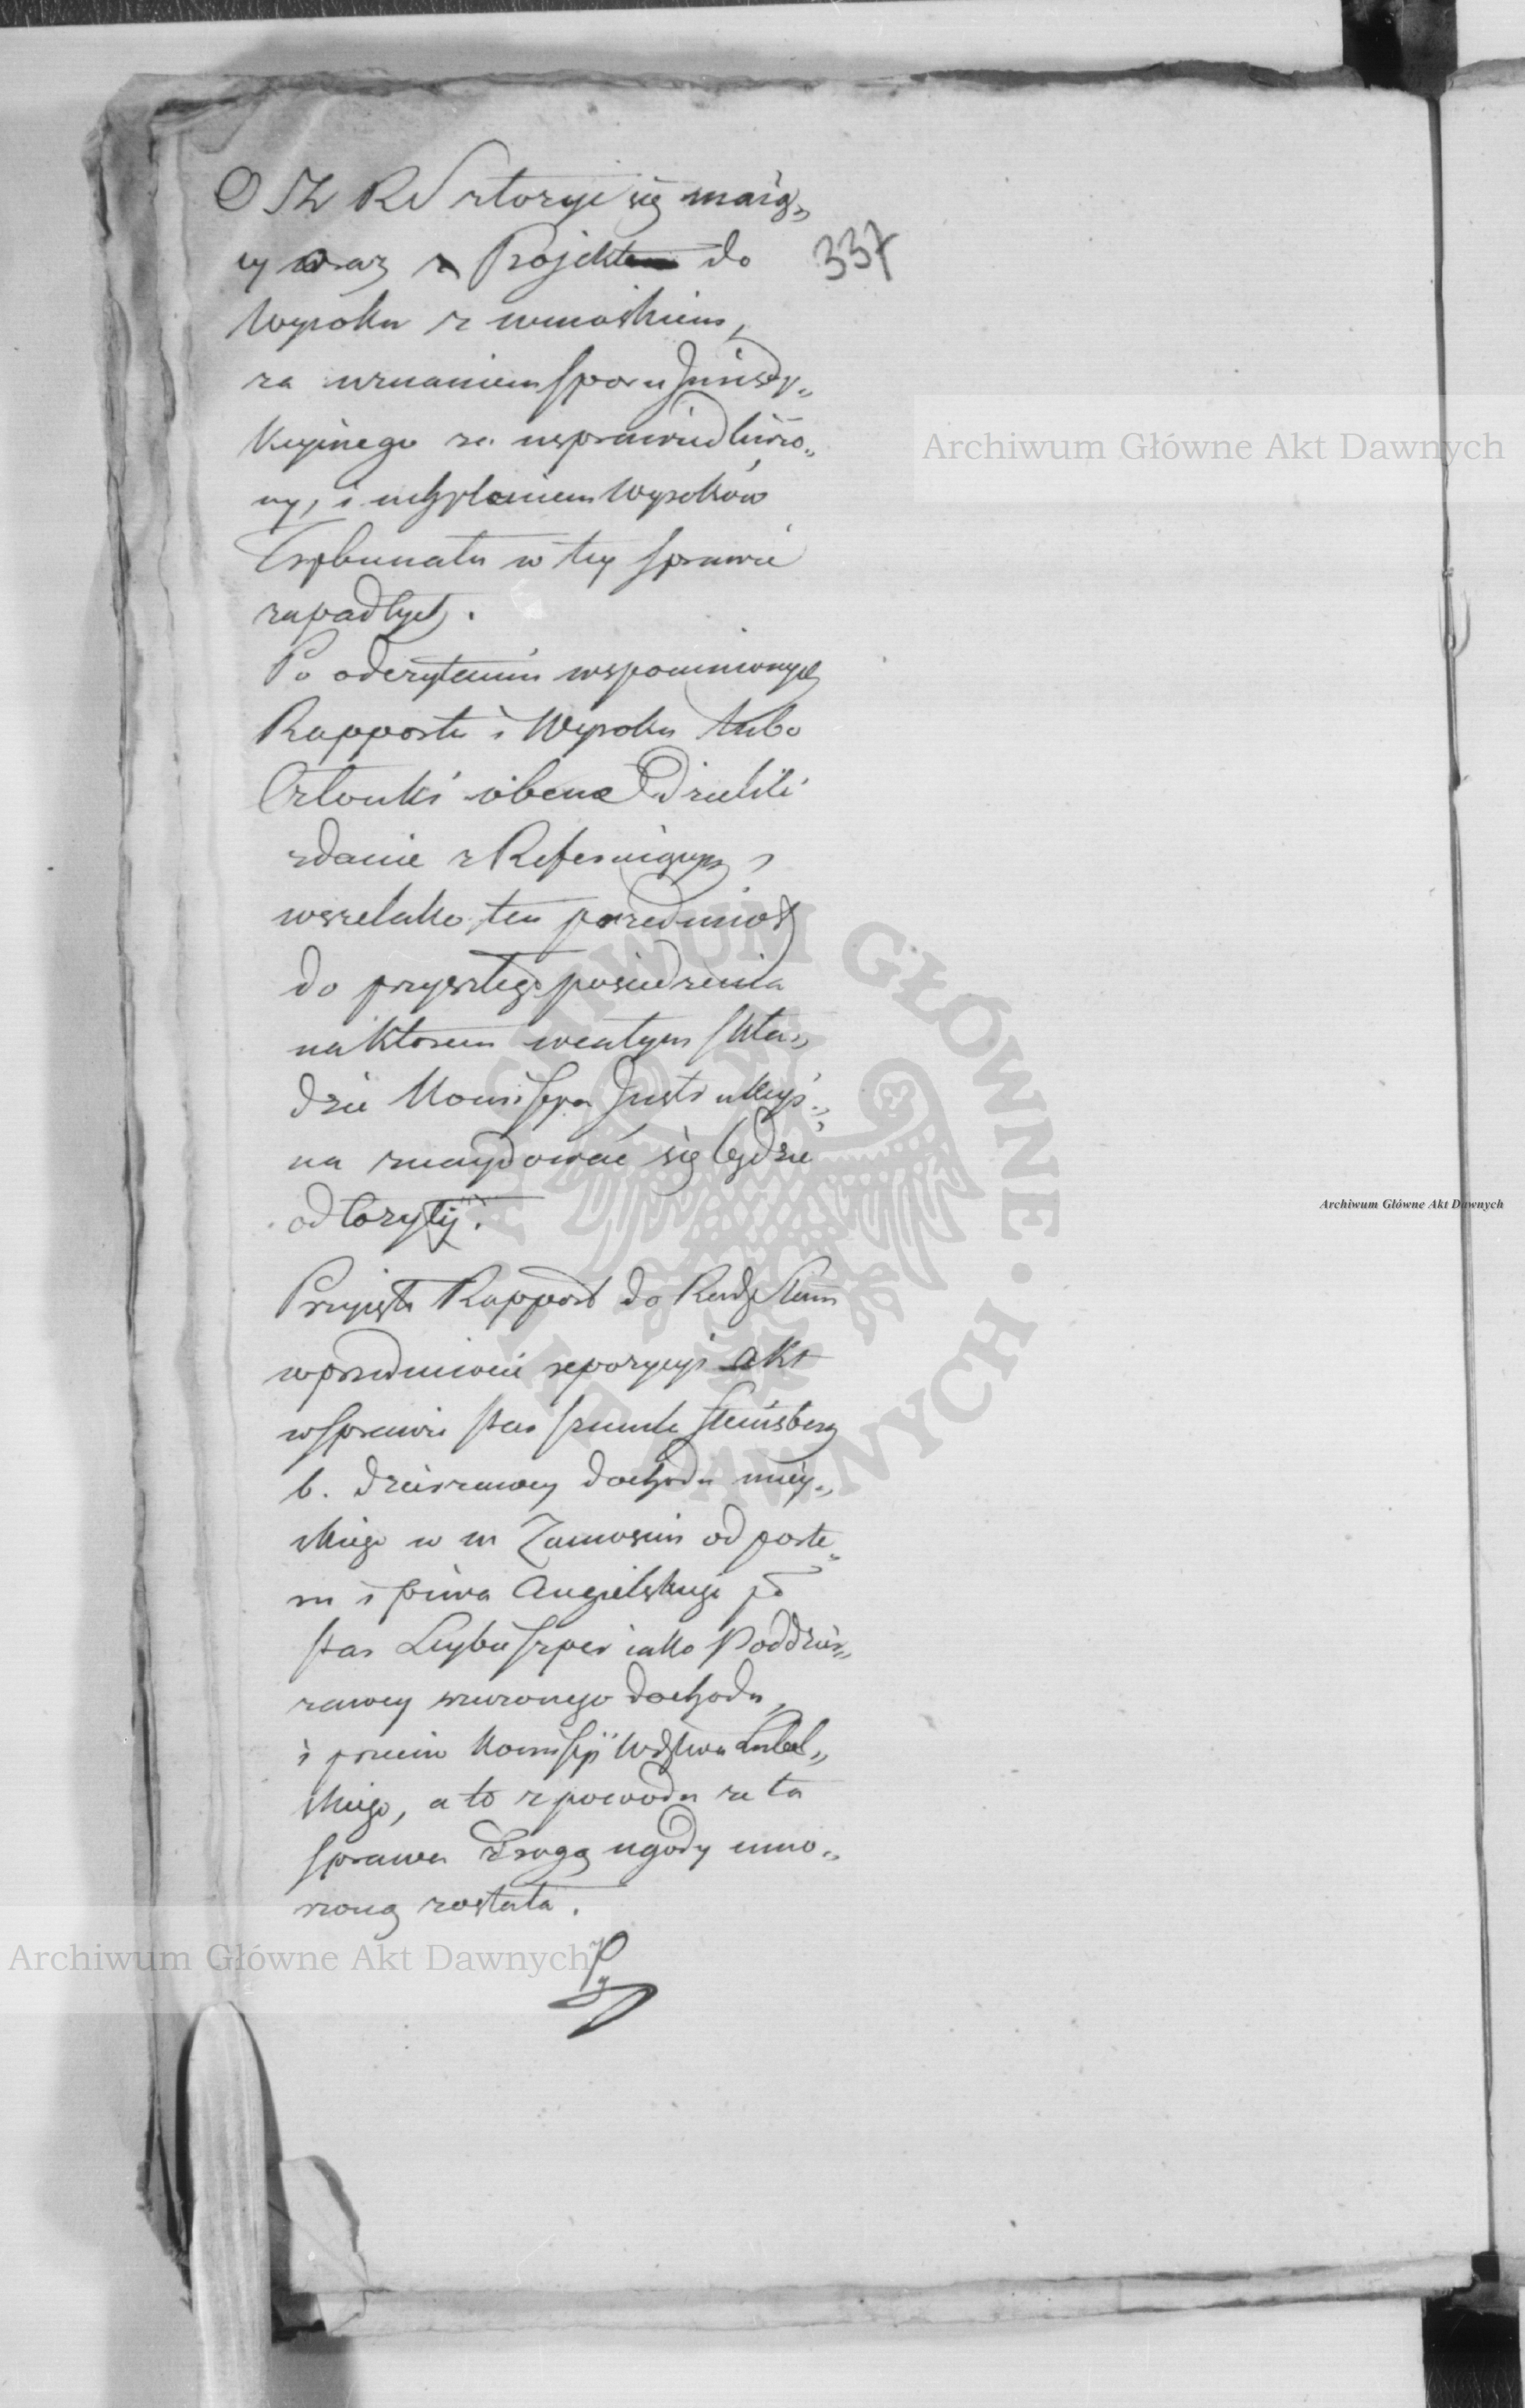 złożyć się maią„
cy wraz z Projekt do
337
Wyroku z wnioskiem,
za uznaniem sporu Jurisdy„
kcyinego za usprawiedliwio„
ny, i uchyleniem Wyroków
Trybunału w tey sprawie
zapadłych.
Po odczytaniu wspomnionych
Rapportu i Wyroku lubo
Członki obecne Dzielili
zdanie z Referuiącym,
wszelako ten przedmiot
do przyszłego posiedzenia
na którem w całym skła„
dzie Kommissya Instrukcyi„
na znaydować się będzie
odłożyły.
Przyięto Rapport do Rady Stanu
w przedmiocie repozycyi akt
w sprawie star
b. dzierżawcy dochodu miey„
skiego w m Zamościu od porte„
ru i piwa Angielskiego
star Leyba Szper iako Poddzier„
żawcy rzeczonego dochodu,
i przeciw Kommissyi Wdztwa Lubel„
skiego, a to z powodu że ta
sprawa drogą ugody umo„
rzoną została.
Archiwum Główne Akt Dawnych
Archiwum Główne Akt Dawnych
Archiwum Główne Akt Dawnych
ARCHIWUM GŁÓWNE AKT DAWNYCH